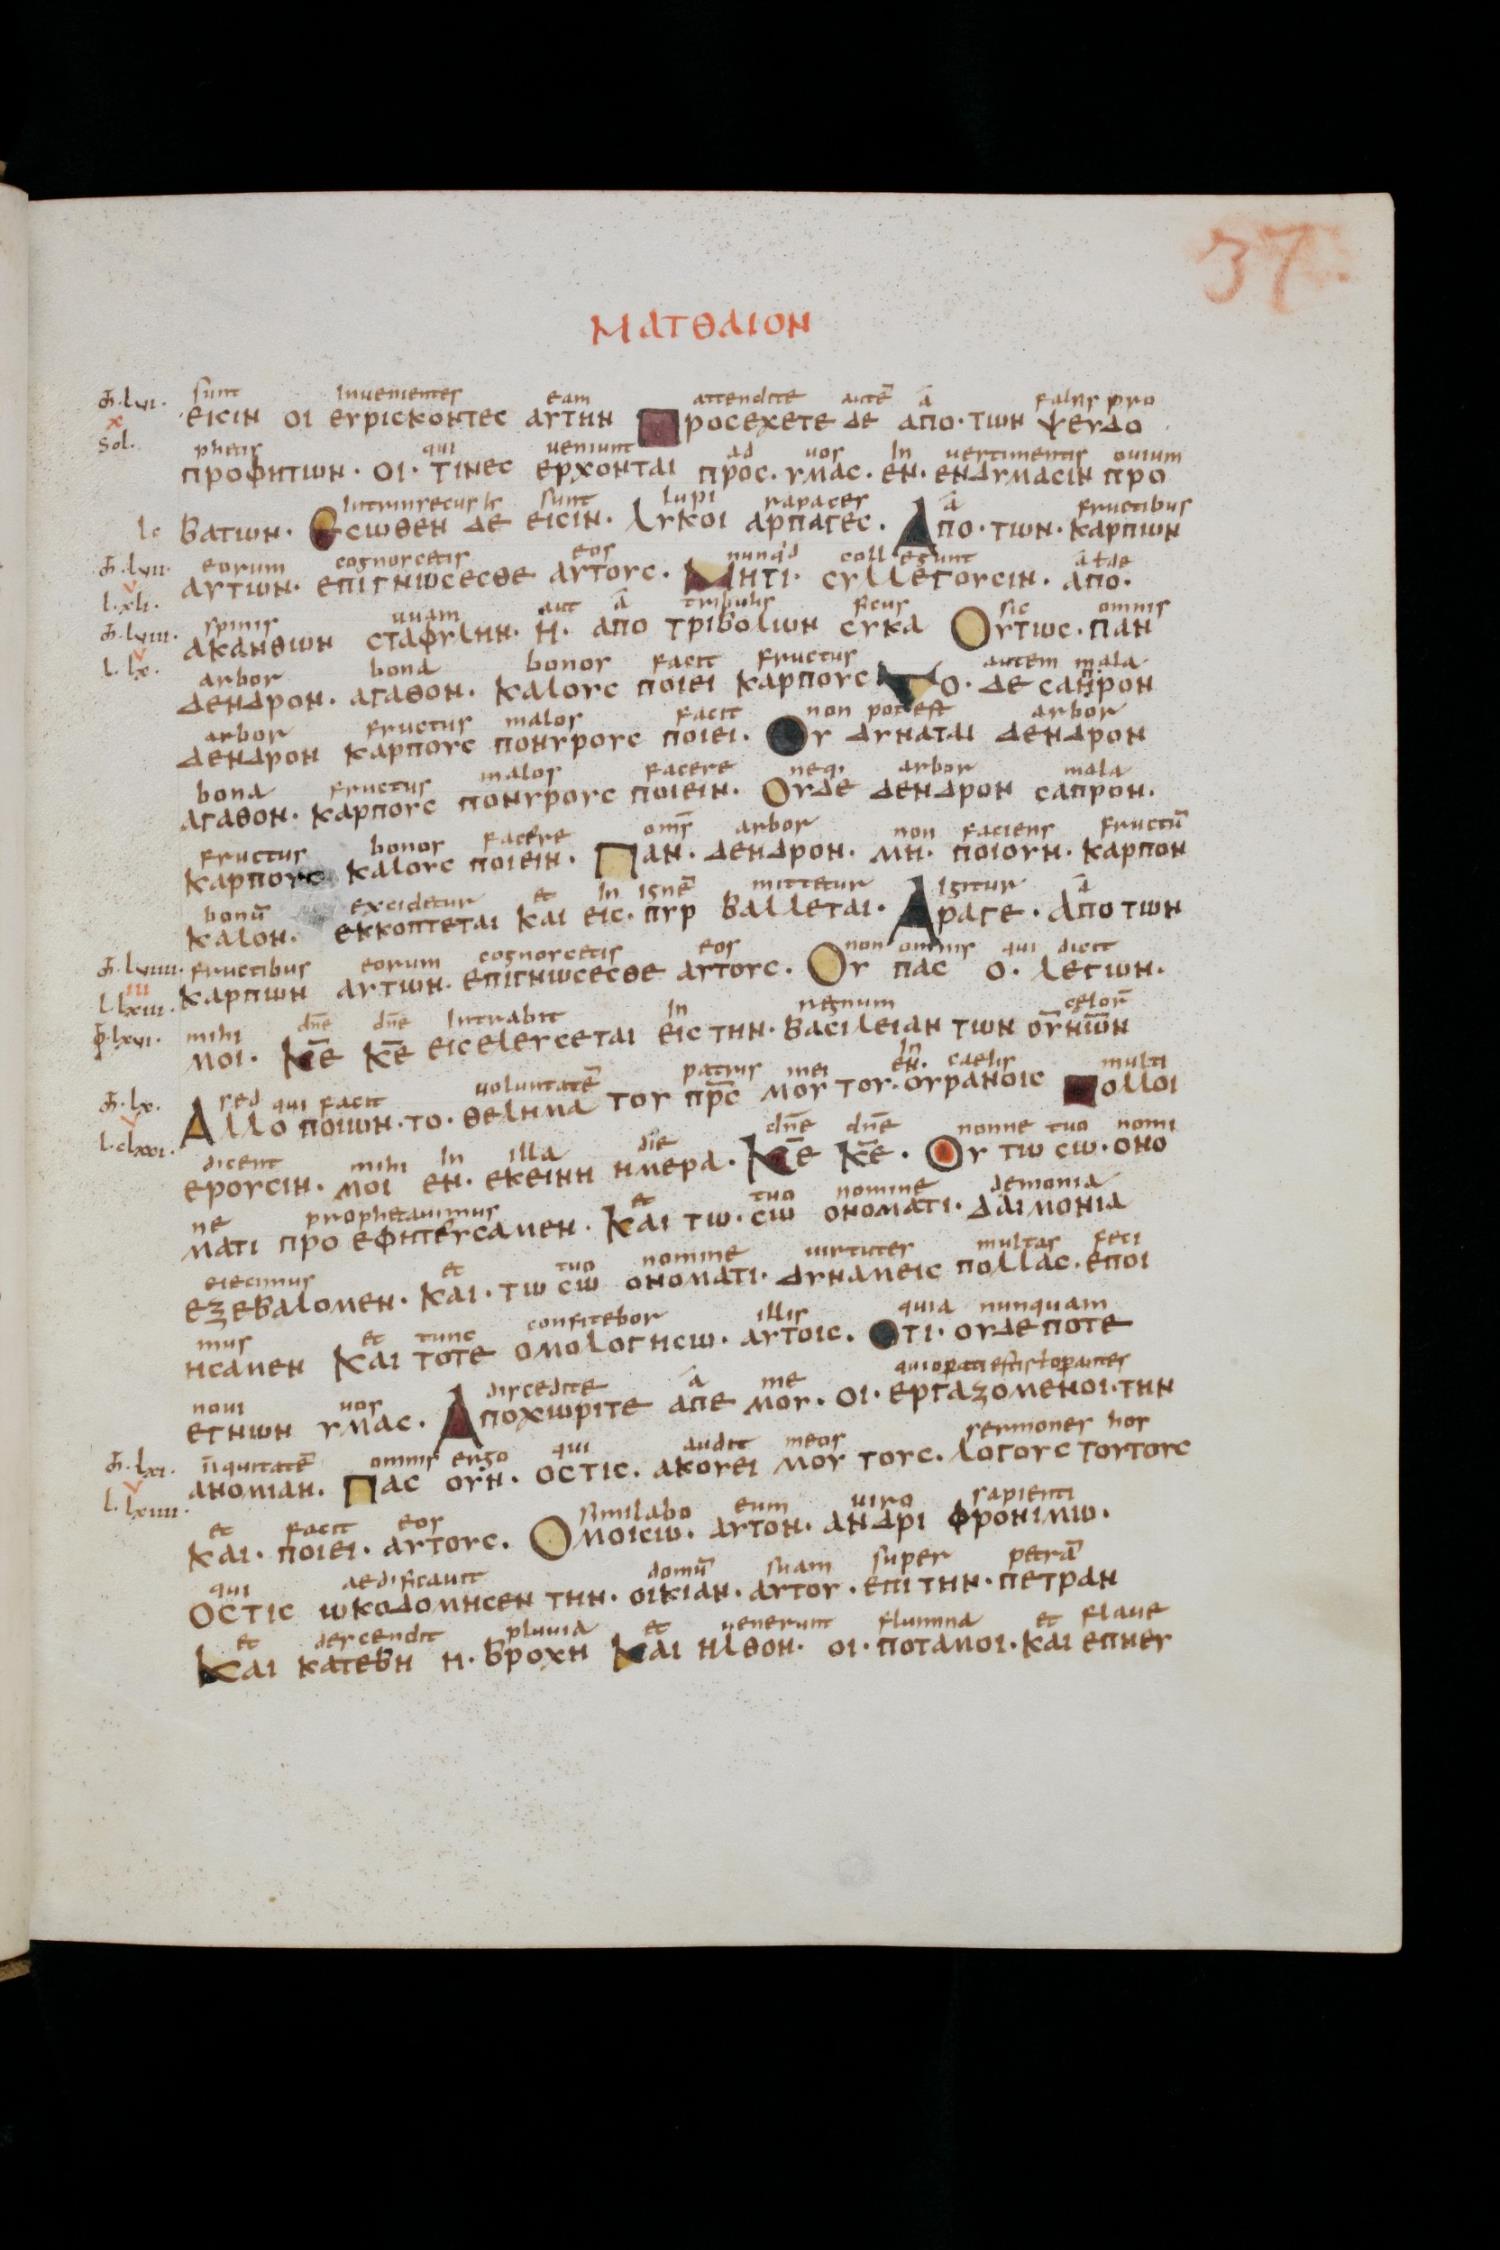 37.
ΜΑΤΘΑΙΟΝ
sunt inuenientes eam attendite autē ā falsis pro
ΕΙCΙΝ ΟΙ ΕΥΡΙCΚΟΝΤΕC ΑΥΤΗΝ ΠΡΟCΕΧΕΤΕ ΔΕ ΑΠΟ·ΤΩΝ ΨΕΥΔΟ
phetis qui ueniunt ad uos In uestimentis ouium
ΠΡΟΦΗΤΩΝ· ΟΙ· ΤΙΝΕC ΕΡΧΟΝΤΑΙ ΠΡΟC· ΥΜΑC· ΕΝ· ΕΝΔΥΜΑCΙΝ ΠΡΟ
Intrinsecus sunt lupi rapaces ā fructibus
ΒΑΤΩΝ· ΕCΩΘΕΝ ΔΕ ΕΙCΙΝ· ΛΥΚΟΙ ΑΡΠΑΓΕC· ΑΠΟ·ΤΩΝ·ΚΑΡΠΩΝ
eorum cognoscetis eos colligunt
ΑΥΤΩΝ· ΕΠΙΓΝΩCΕCΘΕ ΑΥΤΟΥC· ΜΗΤΙ· CΥΛΛΕΓΟΥCΙΝ· ΑΠΟ·
spinis uuam aut ā tribulis ficus sic omnis
ΑΚΑΝΘΩΝ CΤΑΦΥΛΗΝ· Η· ΑΠΟ ΤΡΙΒΟΛΩΝ CΥΚΑ ΟΥΤΩC·ΠΑΝ
arbor bona bonos facit fructus autem mala
ΔΕΝΔΡΟΝ· ΑΓΑΘΟΝ· ΚΑΛΟΥC ΠΟΙΕΙ ΚΑΡΠΟΥC ΤΟ· ΔΕ CΑΠΡΟΝ
arbor fructus malos facit non potest arbor
ΔΕΝΔΡΟΝ ΚΑΡΠΟΥC ΠΟΝΗΡΟΥC ΠΟΙΕΙ· ΟΥ ΔΥΝΑΤΑΙ ΔΕΝΔΡΟΝ
bona fructus malos facere neq; arbor mala
ΑΓΑΘΟΝ· ΚΑΡΠΟΥC ΠΟΝΗΡΟΥC ΠΟΙΕΙΝ· ΟΥΔΕ ΔΕΝΔΡΟΝ CΑΠΡΟΝ·
fructus bonos facere omīs arbor non faciens fructū
ΚΑΡΠΟΥC ΚΑΛΟΥC ΠΟΙΕΙΝ· ΠΑΝ· ΔΕΝΔΡΟΝ· ΜΗ· ΠΟΙΟΥΝ· ΚΑΡΠΟΝ
bonū excidetur et In ignē mittetur igitur ā
ΚΑΛΟΝ· ΕΚΚΟΠΤΕΤΑΙ ΚΑΙ ΕΙC· ΠΥΡ ΒΑΛΛΕΤΑΙ· ΑΡΑΓΕ· ΑΠΟ ΤΩΝ
fructibus eorum cognoscetis eos non omnis qui dicit
ΚΑΡΠΩΝ ΑΥΤΩΝ· ΕΠΙΓΝΩCΕCΘΕ ΑΥΤΟΥC· ΟΥ ΠΑC Ο· ΛΕΓΩΝ·
mihi dn̄e dn̄e Intrabit In regnum celoꝝ
ΜΟΙ· Κ̄Ε Κ̄Ε ΕΙCΕΛΕΥCΕΤΑΙ ΕΙC ΤΗΝ· ΒΑCΙΛΕΙΑΝ ΤΩΝ ΟῩΝΩ̄Ν
sed qui facit uoluntatē patris mei In caelis multi
ΑΛΛΟ ΠΟΙΩΝ·ΤΟ· ΘΕΛΗΜΑ ΤΟΥ Π̄Ρ̄C ΜΟΥ ΤΟΥ· ΕΝ· ΟΥΡΑΝΟΙC ΠΟΛΛΟΙ
dicent mihi In illa die dn̄e dn̄e nonne tuo nomi
ΕΡΟΥCΙΝ· ΜΟΙ ΕΝ· ΕΚΕΙΝΗ ΗΜΕΡΑ· Κ̄Ε Κ̄Ε· ΟΥ ΤΩ CΩ·ΟΝΟ
ne prophetauimus et tuo nomine demonia
ΜΑΤΙ ΠΡΟ ΕΦΗΤΕΥCΑΜΕΝ· ΚΑΙ ΤΩ·CΩ ΟΝΟΜΑΤΙ· ΔΑΙΜΟΝΙΑ
eiecimus et tuo nomine uirtutes multas feci
ΕΖΕΒΑΛΟΜΕΝ· ΚΑΙ· ΤΩ CΩ ΟΝΟΜΑΤΙ· ΔΥΝΑΜΕΙC ΠΟΛΛΑC·ΕΠΟΙ
mus et tunc confitebor illis quia nunquam
ΗCΑΜΕΝ ΚΑΙ ΤΟΤΕ ΟΜΟΛΟΓΗCΩ· ΑΥΤΟΙC· ΟΤΙ· ΟΥΔΕΠΟΤΕ
noui uos discedite ā me
ΕΓΝΩΝ ΥΜΑC· ΑΠΟΧΩΡΙΤΕ ΑΠΕ ΜΟΥ· ΟΙ· ΕΡΓΑΖΟΜΕΝΟΙ·ΤΗΝ
iniquitatē omnis ergo qui audit meos sermones hos
ΑΝΟΜΙΑΝ· ΠΑC ΟΥΝ· ΟCΤΙC· ΑΚΟΥΕΙ ΜΟΥ ΤΟΥC· ΛΟΓΟΥC ΤΟΥΤΟΥC
et facit eos similabo eum uiro sapienti
ΚΑΙ· ΠΟΙΕΙ· ΑΥΤΟΥC· ΟΜΟΙCΩ· ΑΥΤΟΝ· ΑΝΔΡΙ ΦΡΟΝΙΜΩ·
qui aedificauit domū suam super petrā
ΟCΤΙC ΩΚΟΔΟΜΗCΕΝ ΤΗΝ· ΟΙΚΙΑΝ· ΑΥΤΟΥ· ΕΠΙ ΤΗΝ· ΠΕΤΡΑΝ
et descendit pluuia et uenerunt flumina et flaue
ΚΑΙ ΚΑΤΕΒΗ Η· ΒΡΟΧΗ ΚΑΙ ΗΛΘΟΝ· ΟΙ· ΠΟΤΑΜΟΙ·ΚΑΙ ΕΠΝΕΥ